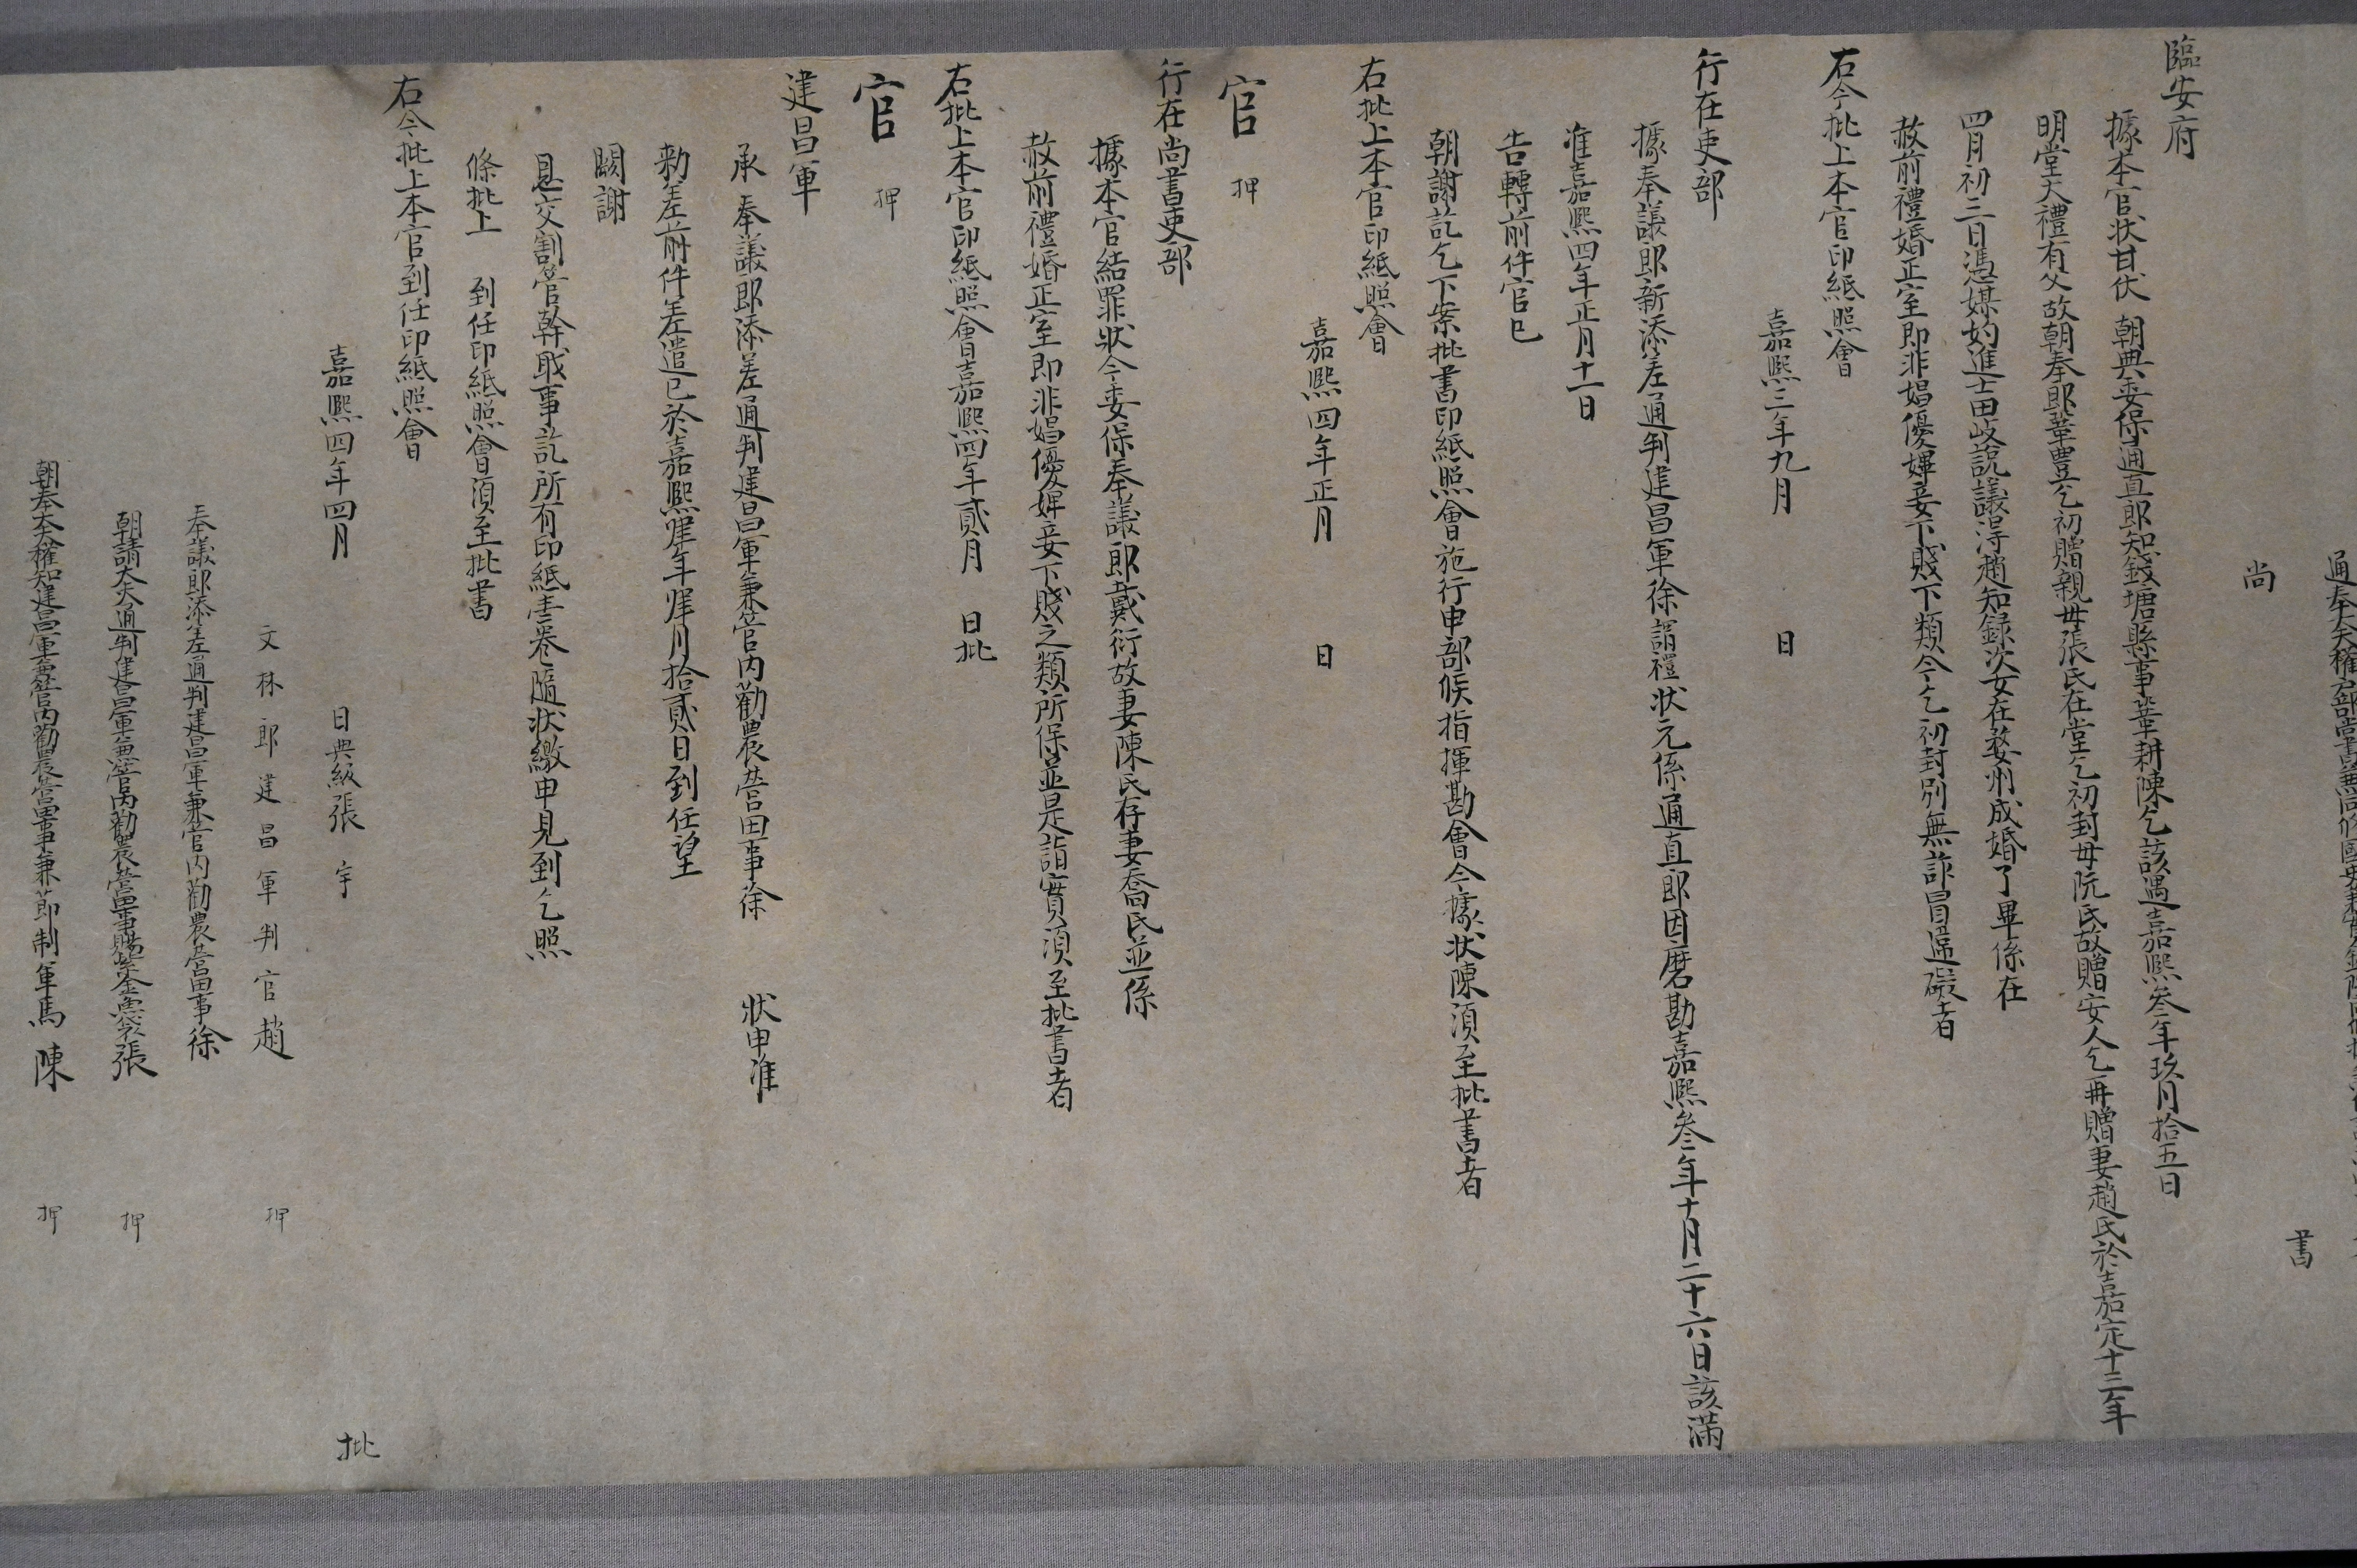 尚　書
臨安府
據本官狀甘伏　朝典委保通直郎知錢塘縣事鞏耕陳乞該遇嘉熙叄年玖月拾五日
明堂大禮有父故朝奉郎鞏豐乞初贈親母張氏在堂乞初封母阮氏故贈安人乞再贈妻趙氏於嘉定十三年
四月初三日憑媒妁進士田歧說議得趙知錄次女在婺州成婚了畢係在
赦前禮婚正室即非娼優婢妾下賤下類今乞初封別無詐冒違礙者
右今批上本官印紙照會
嘉熙三年九月　日
行在吏部
據奉議郎新添差通判建昌軍徐謂禮狀元係通直郎因磨勘嘉熙叄年十月二十六日該滿
准嘉熙四年正月十一日
告轉前件官已
朝謝訖乞下案批書印紙照會施行申部候指揮勘會今據狀陳須至批書者
右批上本官印紙照會
嘉熙四年正月　日
官　押
行在尚書吏部
據本官結罪狀今委保奉議郎戴衍故妻陳氏存妻喬氏並係
赦前禮婚正室即非娼優婢妾下賤之類所保並是詣實須至批書者
右批上本官印紙照會嘉熙四年貳月　日批
官　押
建昌軍
承奉議郎添差通判建昌軍兼管內勸農營田事徐　狀申准
勑差前件差遣已於嘉熙肆年肆月拾貳日到任望
闕謝
恩交割管幹職事訖所有印紙壹卷隨狀繳申見到乞照
條批上　到任印紙照會須至批書
右今批上本官到任印紙照會
嘉熙四年四月　日典級張　宇　批
文林郎建昌軍判官趙　押
奉議郎添差通判建昌軍兼管內勸農營田事徐
朝請大夫通判建昌軍兼管內勸農營田事賜紫金魚袋張　押
朝奉大夫權知建昌軍兼管內勸農營田事兼節制軍馬陳　押